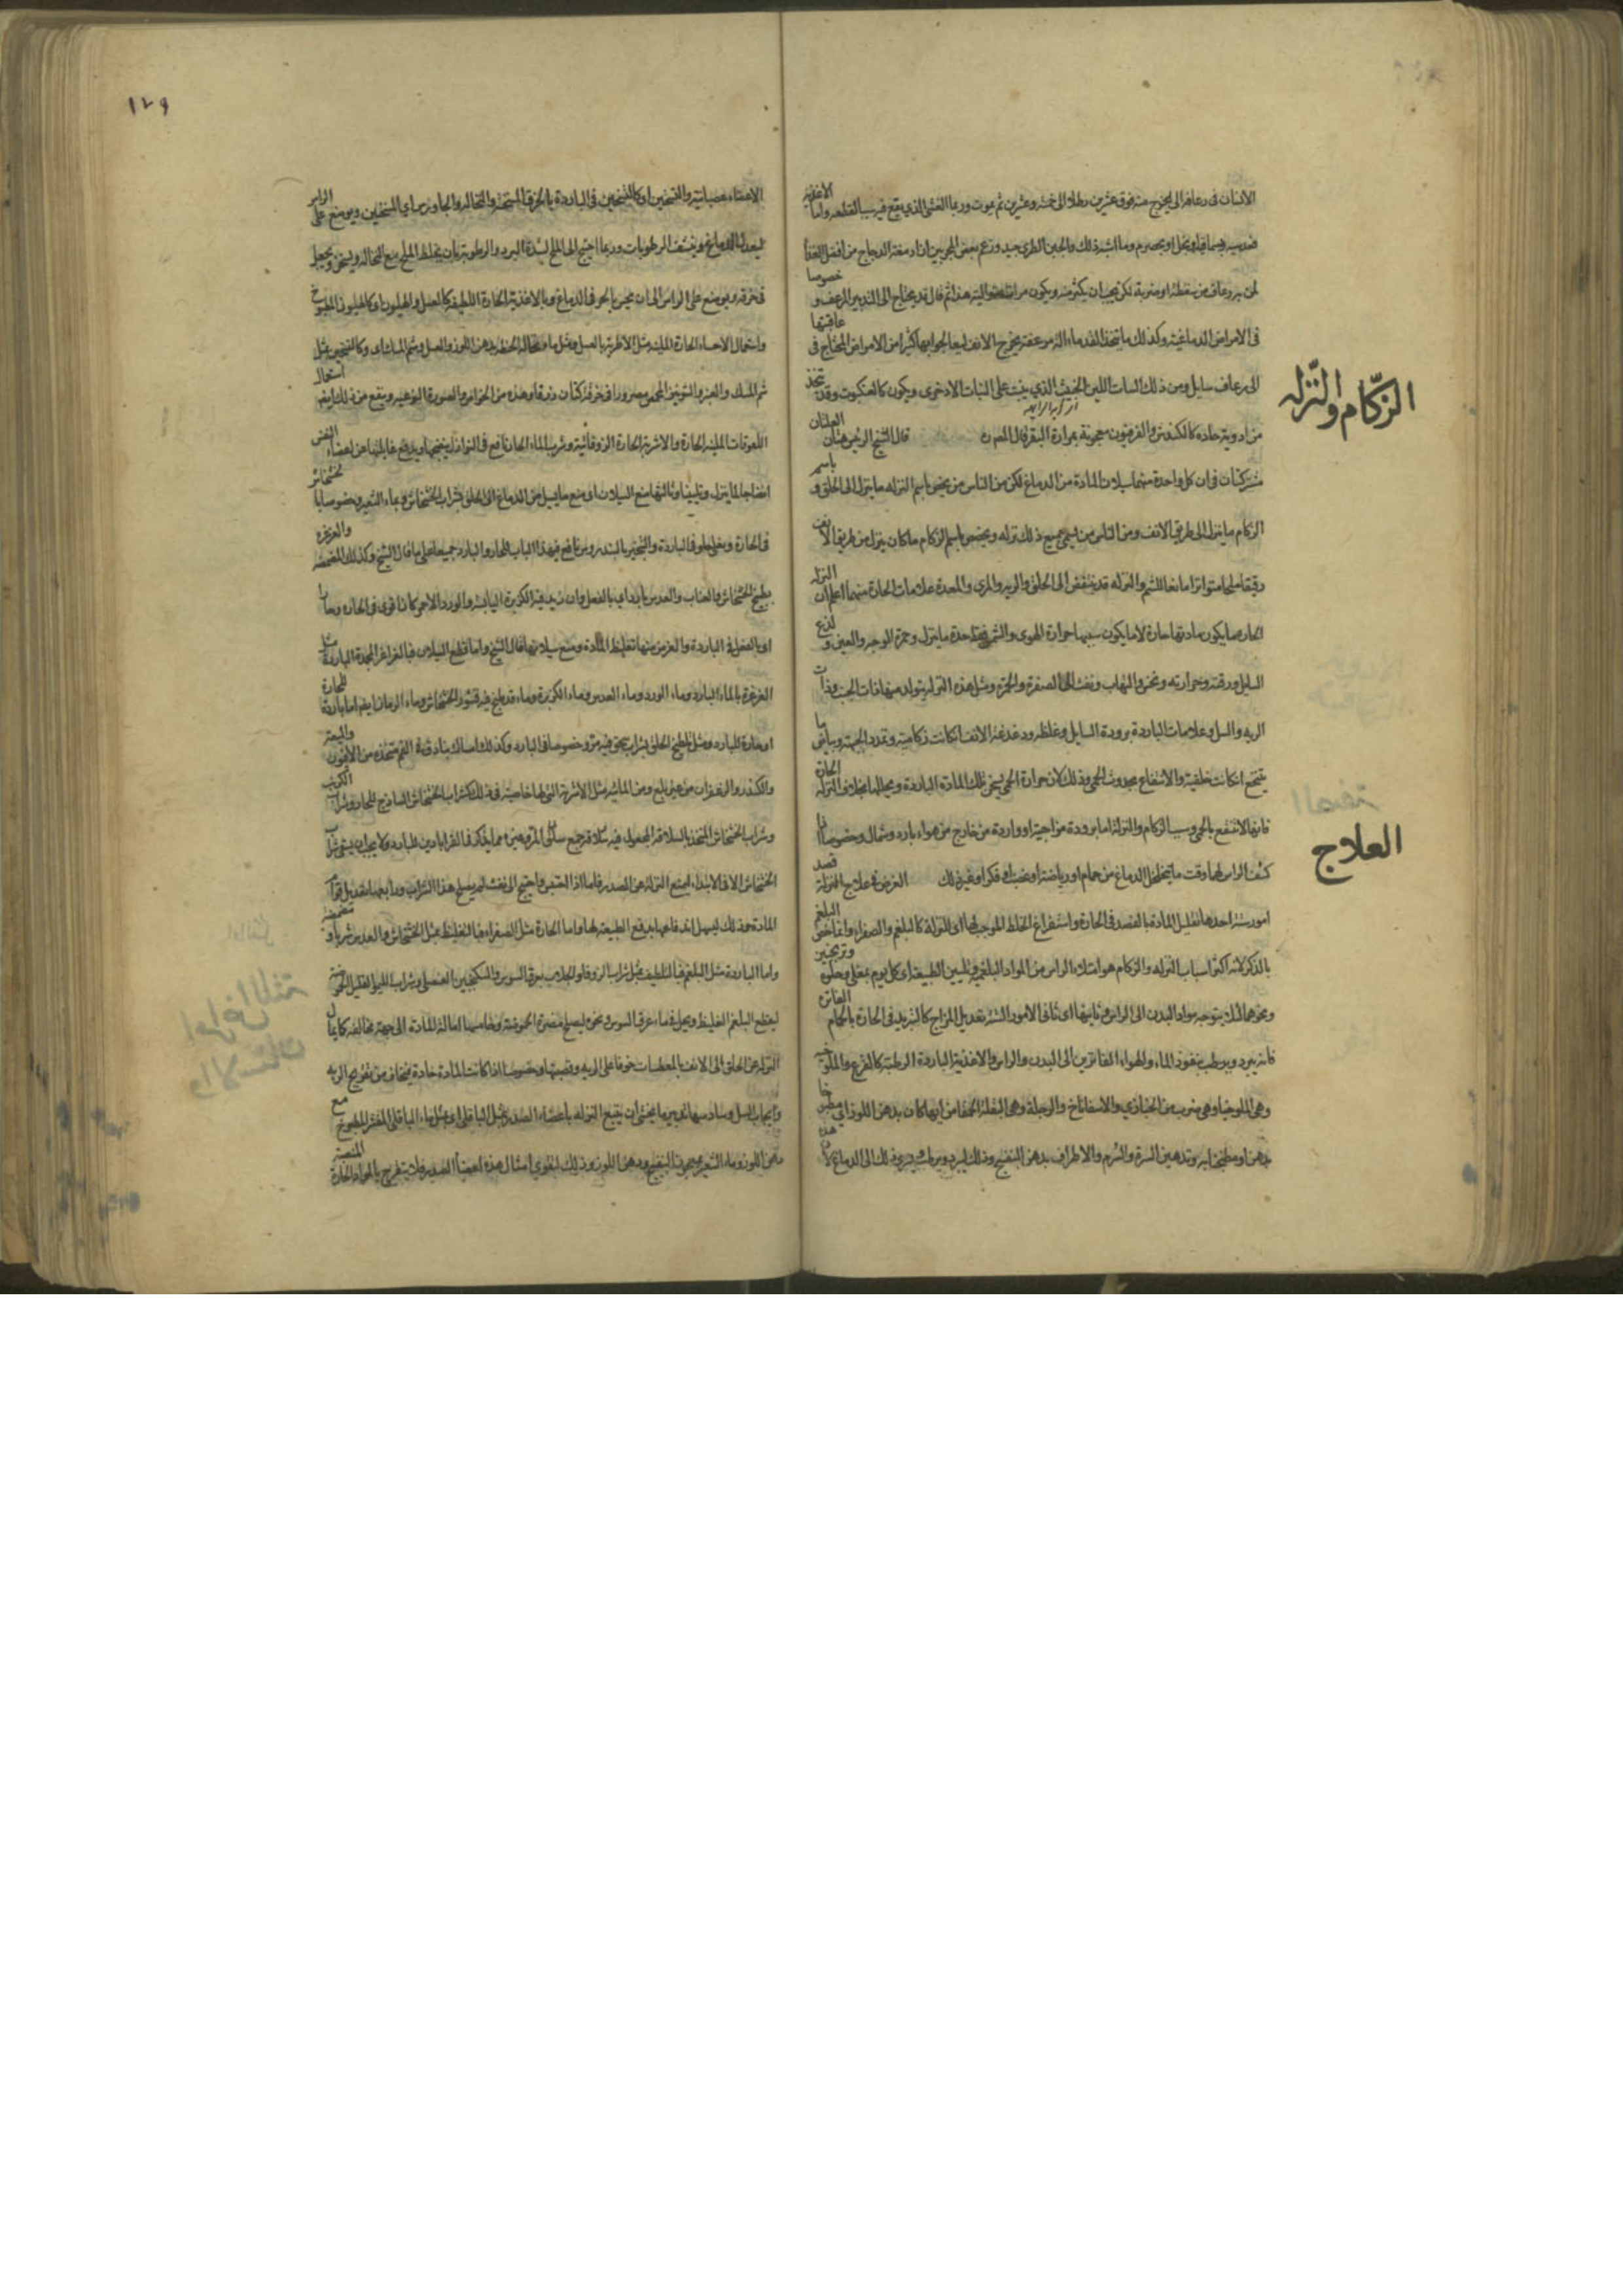 الانسان فى رعافه الى يخرج منه فوق عشرين رطلا الى خمسة وعشرين ثم يموت وربما الغشى الذي يقع فيه سبب القطعه واما الاغذيه
فعدسيه بسماق او بخل او بحصرم وما اشبه ذلك والجبن الطرى جيد وزعم بعض المجربين ان ادمغة الدجاج من افضل الغذا
لمن به رعاف من سقطة او ضربة لكن يجب ان يكثر منه ويكون مرات متوالية هذا ثم قال قد يحتاج الى التدبير المرعف و خصوصا
فى الامراض الدماغية وكذلك ما اتخذ القدماء الة مرعفة يخرج الانف ليعالجوا بها كثيرا من الامراض المحتاج فى عاقبتها
الى رعاف سايل ومن ذلك النبات اللين الخشن الذي ينبت على النبات الاذخرى ويكون كالعنكبوت وقد تتخذ
من ادوية حاده كالكندش والفرفيون معجونة بمرارة البقر قال المص قال الشيخ الرئيس هتان العلتان
مشتركتان فى ان كل واحدة منهما سيلان المادة من الدماغ لكن من الناس من يخص باسم النزله ما ينزل الى الحلق و باسم
الزكام ما ينزل الى طريق الانف ومن الناس من يسمى جميع ذلك نزله ويخص باسم الزكام ما كان ينزل من طريق الانف
رقيقا ملحا متواترا مانعا للشم والنزله قد تنتفض الى الحلق والريه والمرى والمعدة علامات الحارة منهما اعلم ان النزله
الحاره ما يكون مادتها حارة لا ما يكون سببها حرارة الهوى والشمس حدة ما ينزل وحمرة الوجه والعين و لذع
السايل ورقته وحرارته والتهاب ونفث الى الصفرة والحمرة ومثل هذه النزله يتولد منها ذات الجنب وذات
الريه والسل وعلامات الباردة برودة السايل وغلظه ودغدغة الانف ان كانت زكامية وتمدد الجبهة وبياض ما
يتنخع ان كانت حلقية والانتفاع بحدوث الحمى وذلك لان حرارة الحمى يسخن تلك المادة الباردة ويحللها بخلاف النزله الحارة
فانها لا تنتفع بالحمى وسبب الزكام والنزله اما برودة مزاجية او واردة من خارج من هواء بارد وشمال وخصوصا اذا
كشف الراس لها وقت ما يتخلخل الدماغ من حمام او رياضة او غضب او فكر او غير ذلك الغرض فى علاج النزلة قصد
امور ستة احدها تقليل المادة بالفصد فى الحارة واستفراغ الخلط الموجب لها اى للنزلة كالبلغم والصفراء وانما خص البلغم
بالذكر لانه اكثر اسباب النزله والزكام هو امتلاء الراس من المواد البلغمية وتليين الطبيعة اى كل يوم بمغلى وحلوه وترنجبين
ونحوهما لئلا يتوجه مواد البدن الى الراس وثانيها اى ثانى الامور الستة تعديل المزاج كالتبريد فى الحارة بالحمام الفاتره
فانه يبرد ويرطب بنفوذ الماء والهواء الفاترين الى البدن والراس والاغذية الباردة الرطبة كالقرع والملوخيه
وهى الملوخيا وهى ضرب من الخبازي والاسفاناخ والرجلة وهى البقلة الحمقا من ايها كان بدهن اللوز
بدهن وتدهين السرة والشرج والاطراف بدهن البنفسج وذلك ليبرد ويرطب ويجرى ذلك الى الدماغ لان هذه
الزكام والنزله
العلاج
١٢٩
الاعضاء عصبانية والتسخين او كالتسخين فى الباردة بالخرق المسخنة والنخاله والجاورس اى المسخنين ويوضع على الراس
ليعدل الدماغ وينشف الرطوبات وربما احتيج الى الملح لشدة البرد والرطوبة بان يخلط الملح مع النخاله ويسخن ويجعل
فى خرقه ويوضع على الراس الى ان يحس بالحر فى الدماغ وبالاغذية الحارة اللطيفة كالعسل والهليون المطبوخ
واستعمال الاحساء الحارة الملينه مثل الاطرية بالعسل ومثل ماء نخالة الحنطة بدهن اللوز والعسل وشم المسك اى وكالتسخين بمثل
شم المسك والعنبر والشونيز المحمص مصرورا فى خرقة كتان زرقا وهذه من الخواص والصورة النوعيه وينفع من ذلك ايضا استعمال
اللعوقات الملينه الحارة والاشربة الحارة الزوفائية وشرب الماء الحار نافع فى النوازل ينضجها ويدفع غايلتها عن اعضاء النفس
انضاجا لما ينزل وتليينا وثالثها منع السيلان اى منع ما يسيل من الدماغ الى الحلق بشراب الخشخاش وماء الشعير وخصوصا بالخشخاش
فى الحارة وبغلى حلو فى الباردة والتبخير بالسندروس نافع فى هذا الباب للحار والبارد جميعا على ما قال الشيخ وكذلك المضمضة والغرغره
بطبيخ الخشخاش والعناب والعدس باردا اى بالفعل وان زيد فيه الكزبرة اليابسة والورد الاحمر كانا اقوى فى الحاره وحارا
اى بالفعل فى الباردة والغرض منها تغليظ المادة ومنع سيلانها قال الشيخ واما قطع السيلان فبالغراغر المجمدة الباردة مثل
الغرغرة بالماء البارد وماء الورد وماء العدس وماء الكزبرة وماء قد طبخ فيه قشور الخشخاش وماء الرمان ايضا اما باردة للحارة
او حارة للبارد ومثل تلطيخ الحلق بشراب سحق فيه مر وخصوصا فى البارد وكذلك امساك بنادق فى الفم متخذه من الافيون والميعه
والكندر والزعفران من غير بلع ومن المانعة مثل الاشربة التى لها خاصية فى ذلك كشراب الخشخاش الساذج للحار وشراب الكرنب
وشراب الخشخاش المتخذ بالسلاقة المجعول فيه المر وغيره مما يذكر فى القراباذين للبارد ولا يجب ان يسقى شراب
الخشخاش الا فى الابتداء ليمنع النزله عن الصدر فاما اذا احتبس واحتيج الى نفث لم يصلح هذا الشراب ورابعها تعديل قوام
المادة وذلك ليسهل اندفاعها بدفع الطبيعة لها واما الحارة مثل الصفراء فبالتغليظ بمثل الخشخاش والعدس شربا و مضمضة
واما الباردة مثل البلغم فبالتلطيف بمثل شراب الزوفا والجلاب بعرق السوس والسكنجبين العنصلى وشراب الليمو القليل الحموضة
ليقطع البلغم الغليظ ويحل فى ماء عرق السوس ونحوه ليصلح مضرة الحموضة وخامسها امالة المادة الى جهة مخالفه كامال
النزله عن الحلق الى الانف بالمعطسات خوفا على الريه وقصبتها وخصوصا اذا كانت المادة حادة فيخاف من تقريح الريه
وايجاب السل وسادسها تدبير ما يخشى ان يتبع النزله باعضاء الصدر بمثل الباقلى اى بمثل ماء الباقلى المقشر المطبوخ مع
دهن اللوز وماء الشعير معجونا البنفسج ودهن اللوز وذلك لتقوى امثال هذه اعضاء الصدر فلا يتقرح بالمواد الحادة المنصبة